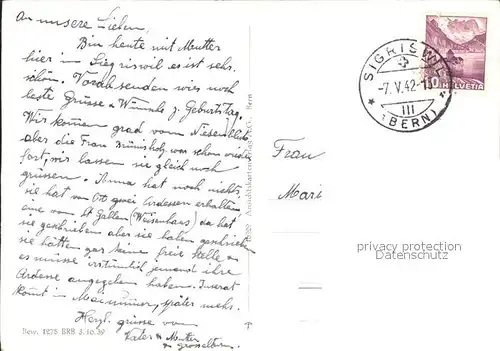 An unsere Lieben,
Bin heute mit Mutter
hier in Siegriswil es ist sehr
schön. Vorab senden wir euch
beste Grüsse & Wünsche z. Geburtstag.
Wir kommen grad vom Niesenblick
aber die Frau war schon wieder
fort, wir lassen sie gleich noch
grüssen. Anna hat noch nichts,
sie hat von Ott zwei Adressen erhalten
eine von St Gallen (Waisenhaus) da hat
sie geschrieben aber sie haben geschrieben
sie hätten gar keine freie Stelle &
es müsse irrtümlich jemand ihre
Adresse angegeben haben. Inserat
kommt in Mainummer, später mehr.
Herzl. grüsse von
Vater & Mutter
& Grosseltern.
Bew. 1275 BRB 3.10.39
Bern
SIGRISWIL
-7.V.42-1
III
(BERN)
HELVETIA
Frau
Mari
privacy protection
Datenschutz